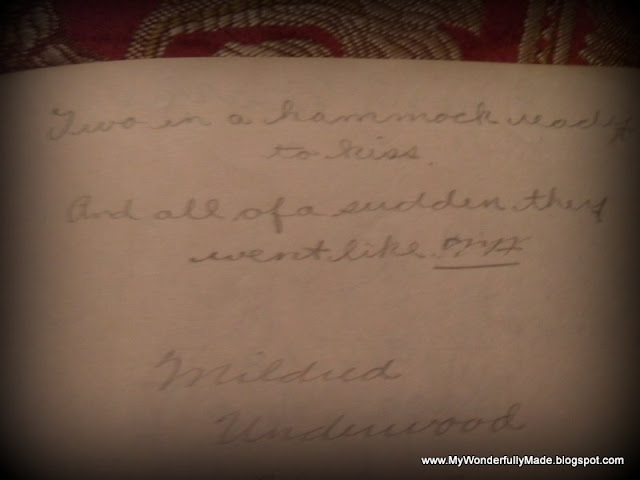 Two in a hammock ready
to kiss.
And all of a sudden they
went like this
Mildred
Underwood
www.MyWonderfullyMade.blogspot.com